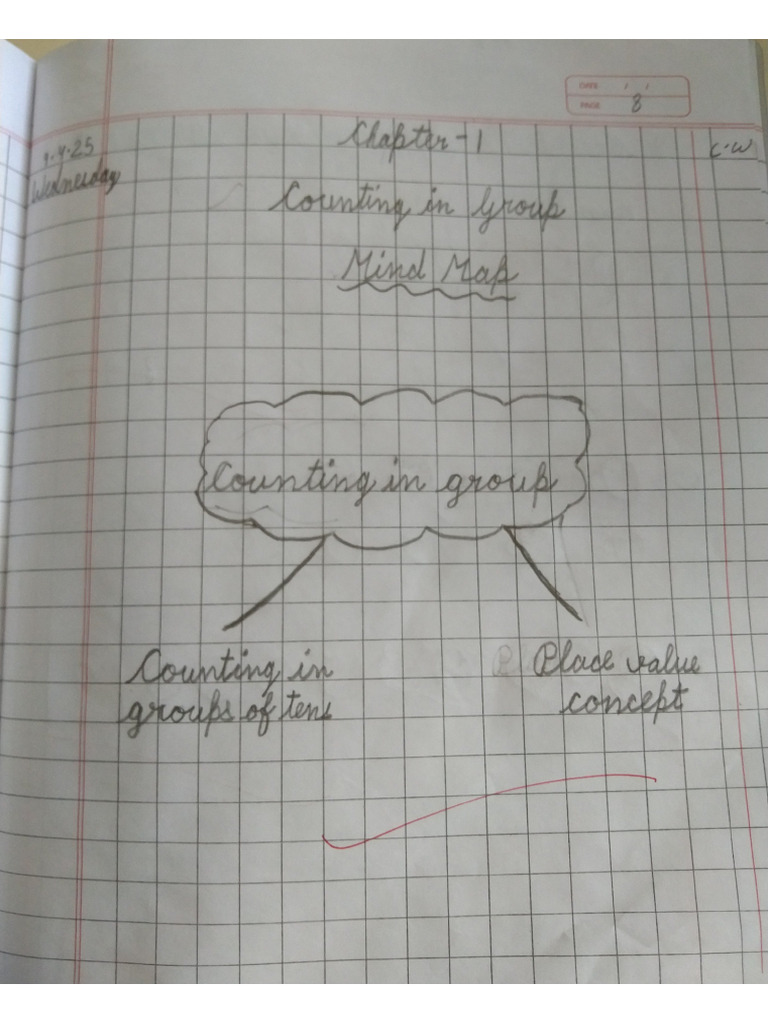 DATE / /
PAGE 8
9.4.25
Wednesday
Chapter-1
C.W
Counting in Group
Mind Map
Counting in group
Counting in
groups of tens
Place value
concept